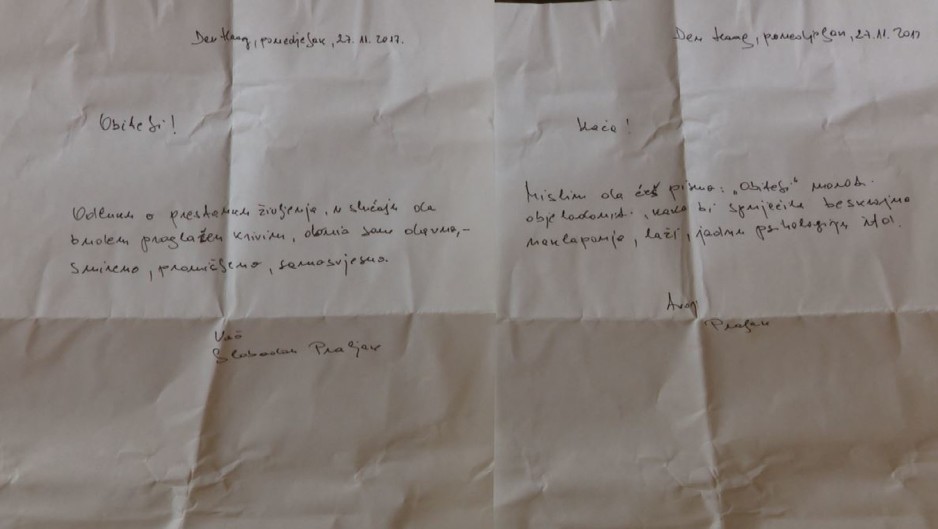 Den Haag, ponedjeljak, 27.11.2017.
Obitelji!
Odluku o prestanku življenja, u slučaju da
budem proglašen krivim, donio sam davno, -
smireno, promišljeno, samosvjesno.
Vaš
Slobodan Praljak
Den Haag, ponedjeljak, 27.11.2017
Kaća!
Mislim da ćeš pismo: „Obitelji" morati
objelodaniti, kako bi spriječila beskrajna
naklapanja, laži, jadnu psihologiju itd.
Praljak